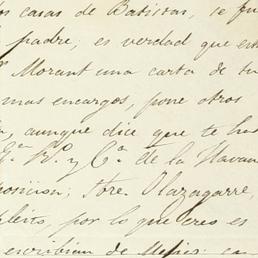 los casas de Batistas, se fu
padre; es verdad que est
Morant una carta de tu
mas encargos, pone otros
aunque dice que te ha
Gª Rº y Cª de la Havan
posicion; Sore. Olazagarre,
pleito, por lo que eres es
escribian de Mejico; en